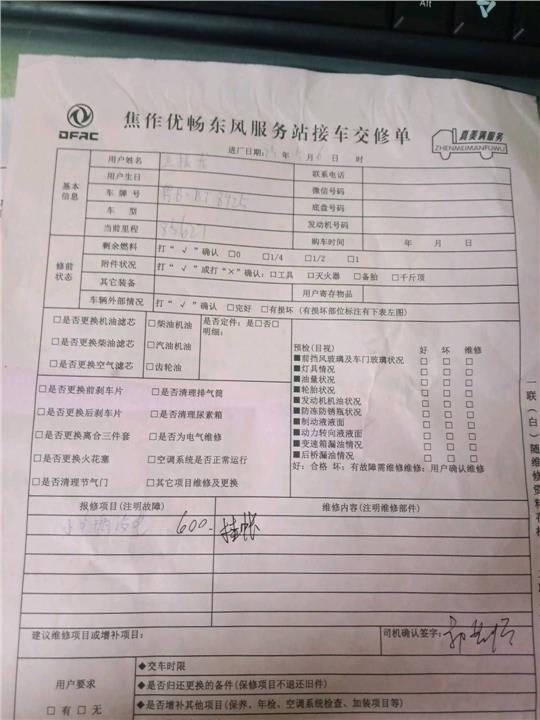 DFAC
焦作优畅东风服务站接车交修单
真美满服务
ZHENMEIMANFUWU
进厂日期: 年 月 日 时
基本信息
用户姓名 联系电话
用户生日 微信号码
车牌号 底盘号码
车型 发动机号码
当前里程 85621 购车时间 年 月 日
修前状态
剩余燃料 打"√"确认 □0 □1/4 □1/2 □1
附件状况 打"√"或打"×"确认:□工具 □灭火器 □备胎 □千斤顶
其它装备 用户寄存物品
车辆外部情况 打"√"确认 □完好 □有损坏(有损坏部位标注有下表左图)
□是否更换机油滤芯 □柴油机油 是否定件:是□否□
明细:
□是否更换柴油滤芯 □汽油机油
□是否更换空气滤芯 □齿轮油
预检(目视) 好 坏 维修
■前挡风玻璃及车门玻璃状况 □ □ □
■灯具情况 □ □ □
■油量状况 □ □ □
■轮胎状况 □ □ □
■发动机机油状况 □ □ □
■防冻防锈瓶状况 □ □ □
■制动液液面 □ □ □
■动力转向液液面 □ □ □
■变速箱漏油情况 □ □ □
■后桥漏油情况 □ □ □
好:合格 坏:有故障需维修维修:用户确认维修
□是否更换前刹车片 □是否清理排气筒
□是否更换后刹车片 □是否清理尿素箱
□是否更换离合三件套 □是否为电气维修
□是否更换火花塞 □空调系统是否正常运行
□是否清理节气门 □其它项目维修及更换
报修项目(注明故障) 维修内容(注明维修部件)
600- 挂帐
建议维修项目或增补项目: 司机确认签字:
用户要求
□有□无
◆交车时限
◆是否归还更换的备件(保修项目不退还旧件)
◆是否增补其他项目(保养、年检、空调系统检查、加装项目等)
一联(白)随维修资料存